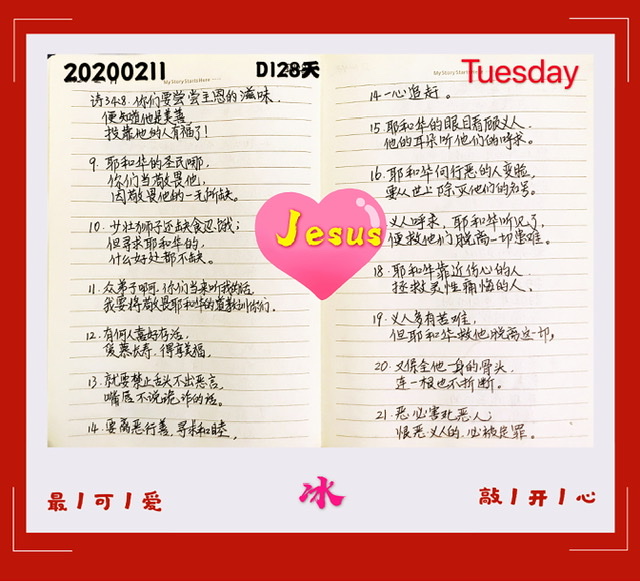 20200211
D128天
Tuesday
My Story Starts Here
诗34:8.你们要尝尝主恩的滋味,
便知道他是美善
投靠他的人有福了!
9. 耶和华的圣民哪,
你们当敬畏他,
因敬畏他的一无所缺。
10. 少壮狮子还缺食忍饿;
但寻求耶和华的,
什么好处都不缺。
11. 众弟子啊,你们当来听我的话,
我要将敬畏耶和华的道教训你们。
12. 有何人喜好存活,
爱慕长寿,得享美福,
13. 就要禁止舌头不出恶言,
嘴唇不说诡诈的话。
14. 要离恶行善,寻求和睦,
14一心追赶。
15 耶和华的眼目看顾义人,
他的耳朵听他们的呼求。
16. 耶和华向行恶的人变脸,
要从世上除灭他们的名号。
义人呼求,耶和华听见了,
便救他们脱离一切患难。
18. 耶和华靠近伤心的人,
拯救灵性痛悔的人。
19. 义人多有苦难,
但耶和华救他脱离这一切,
20. 又保全他一身的骨头,
连一根也不折断。
21. 恶必害死恶人;
恨恶义人的,必被定罪。
Jesus
最/可/爱
冰
敲/开/心